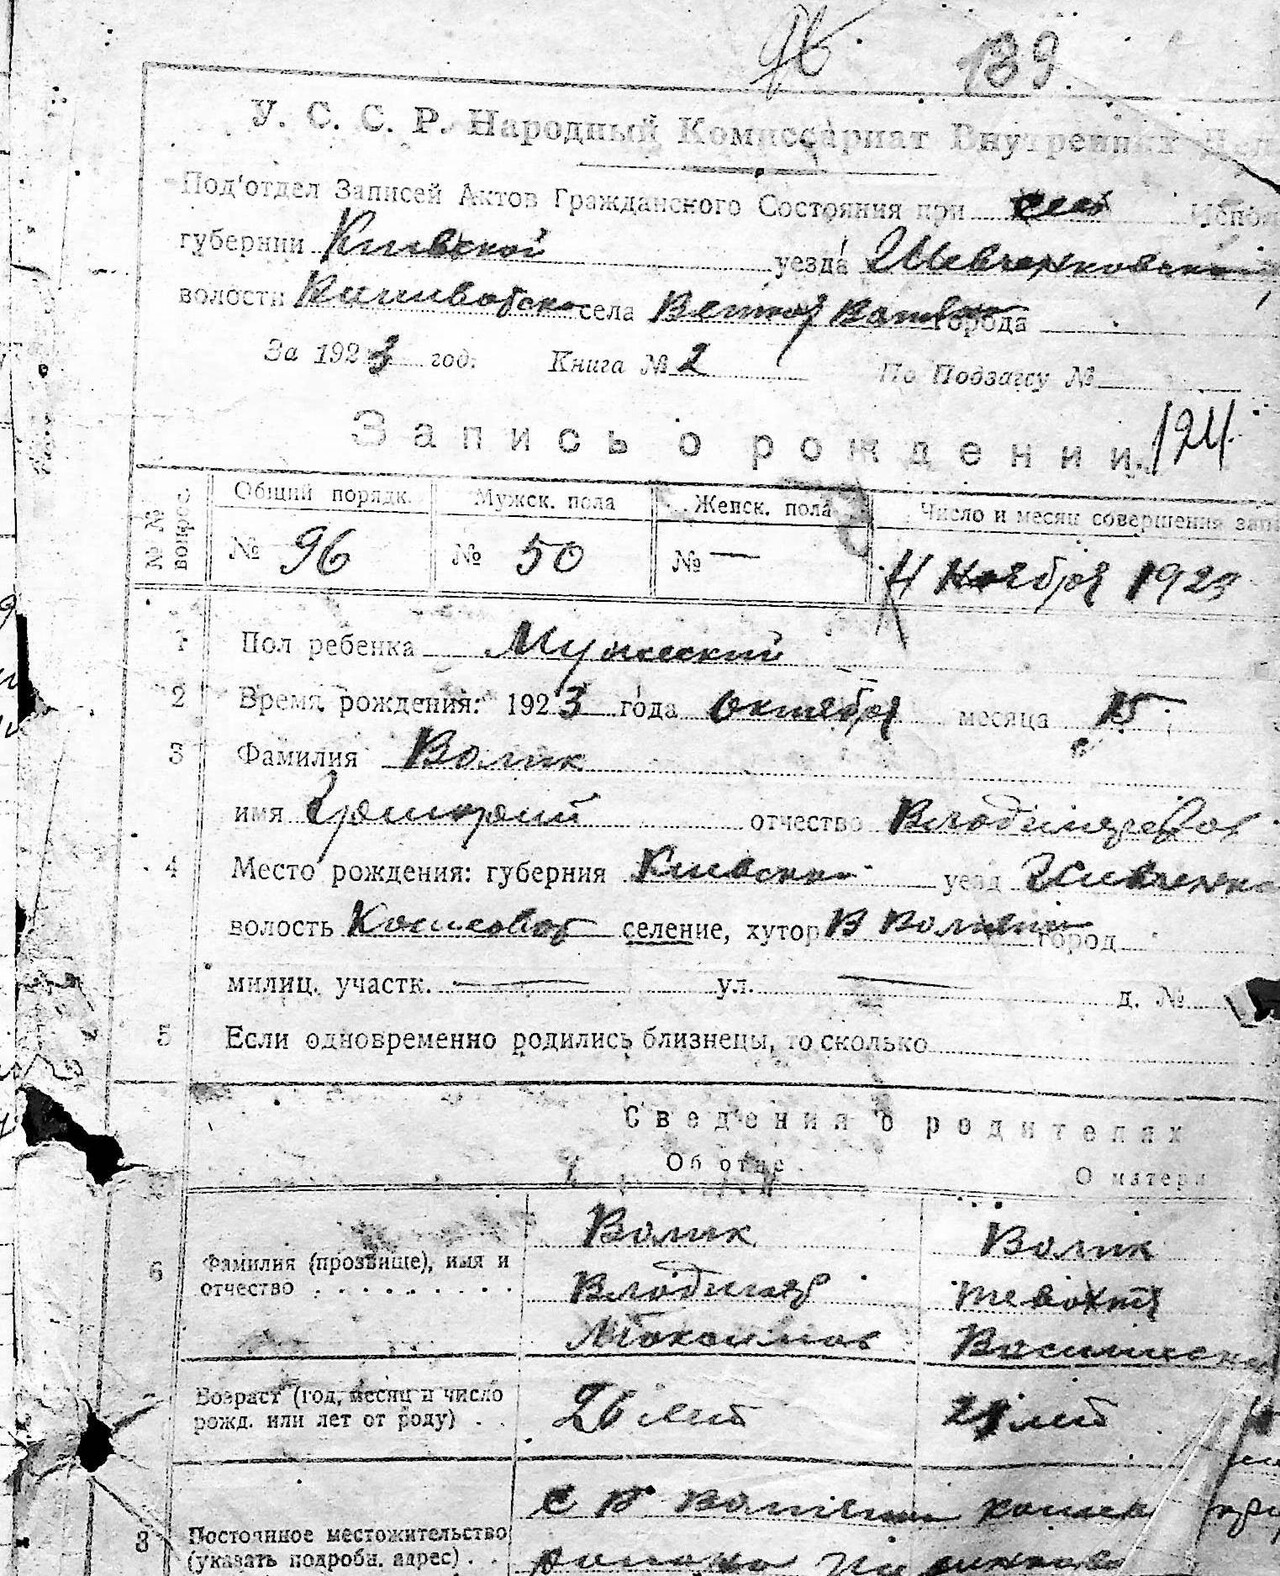 96 139.
У. С. С. Р. Народный Комиссариат Внутренних Дел
Под'отдел Записей Актов Гражданского Состояния при сел Испо
губернии Киевской уезда Шевченковской
волости села города
За 1923 год. Книга № 2 По Подзагсу №
Запись о рождении. 124
№ № вопрос Общий порядк. Мужск. пола Женск. пола Число и месяц совершения зап
№ 96 № 50 № — Ноября 1923
1 Пол ребенка Мужеский
2 Время рождения: 1923 года октября месяца 15
3 Фамилия Волик
имя Григорий отчество Владимиров
4 Место рождения: губерния Киевская уезд Шевченко
волость селение, хутор В город
милиц. участк. — ул. — д. №
5 Если одновременно родились близнецы, то сколько
Сведения о родителях
Об отце О матери
6 Фамилия (прозвище), имя и отчество Волик Волик
Владимир
Васильевна
Возраст (год, месяц и число рожд. или лет от роду) 26 лет 21 лет
8 Постоянное местожительство (указать подробн. адрес)